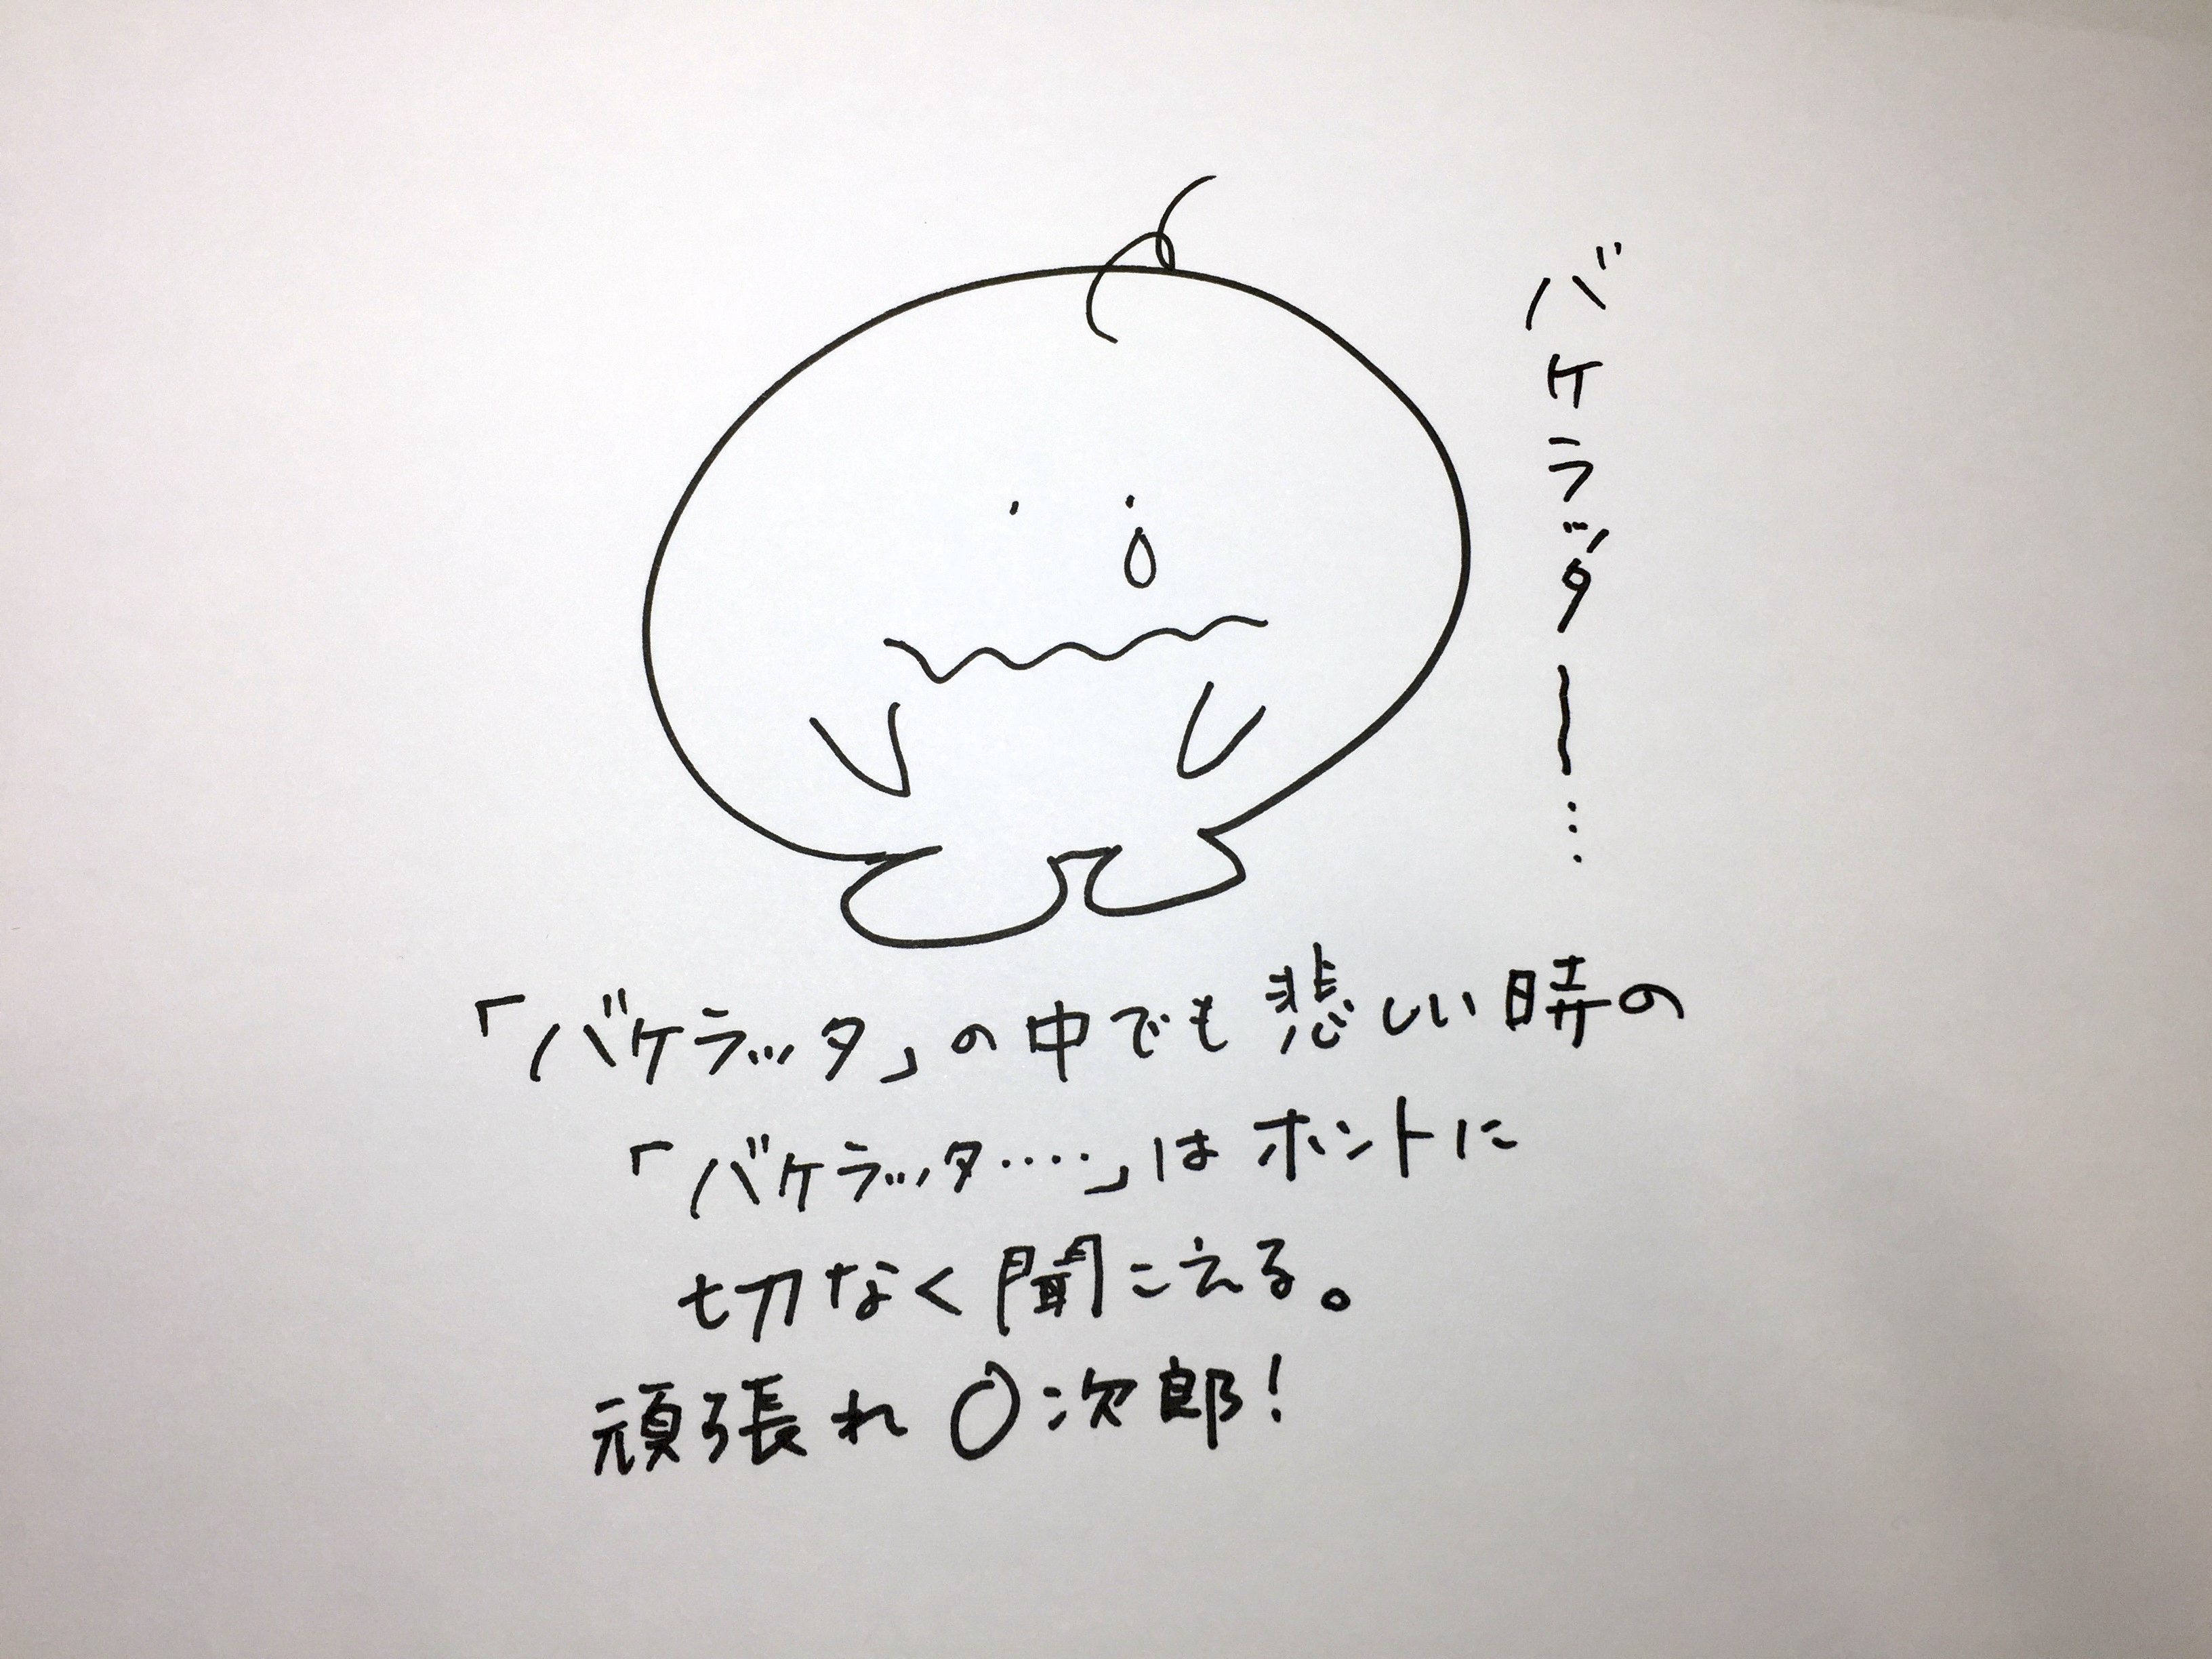 バケラッター…
「バケラッタ」の中でも悲しい時の
「バケラッタ‥‥」はホントに
切なく聞こえる。
頑張れO次郎！